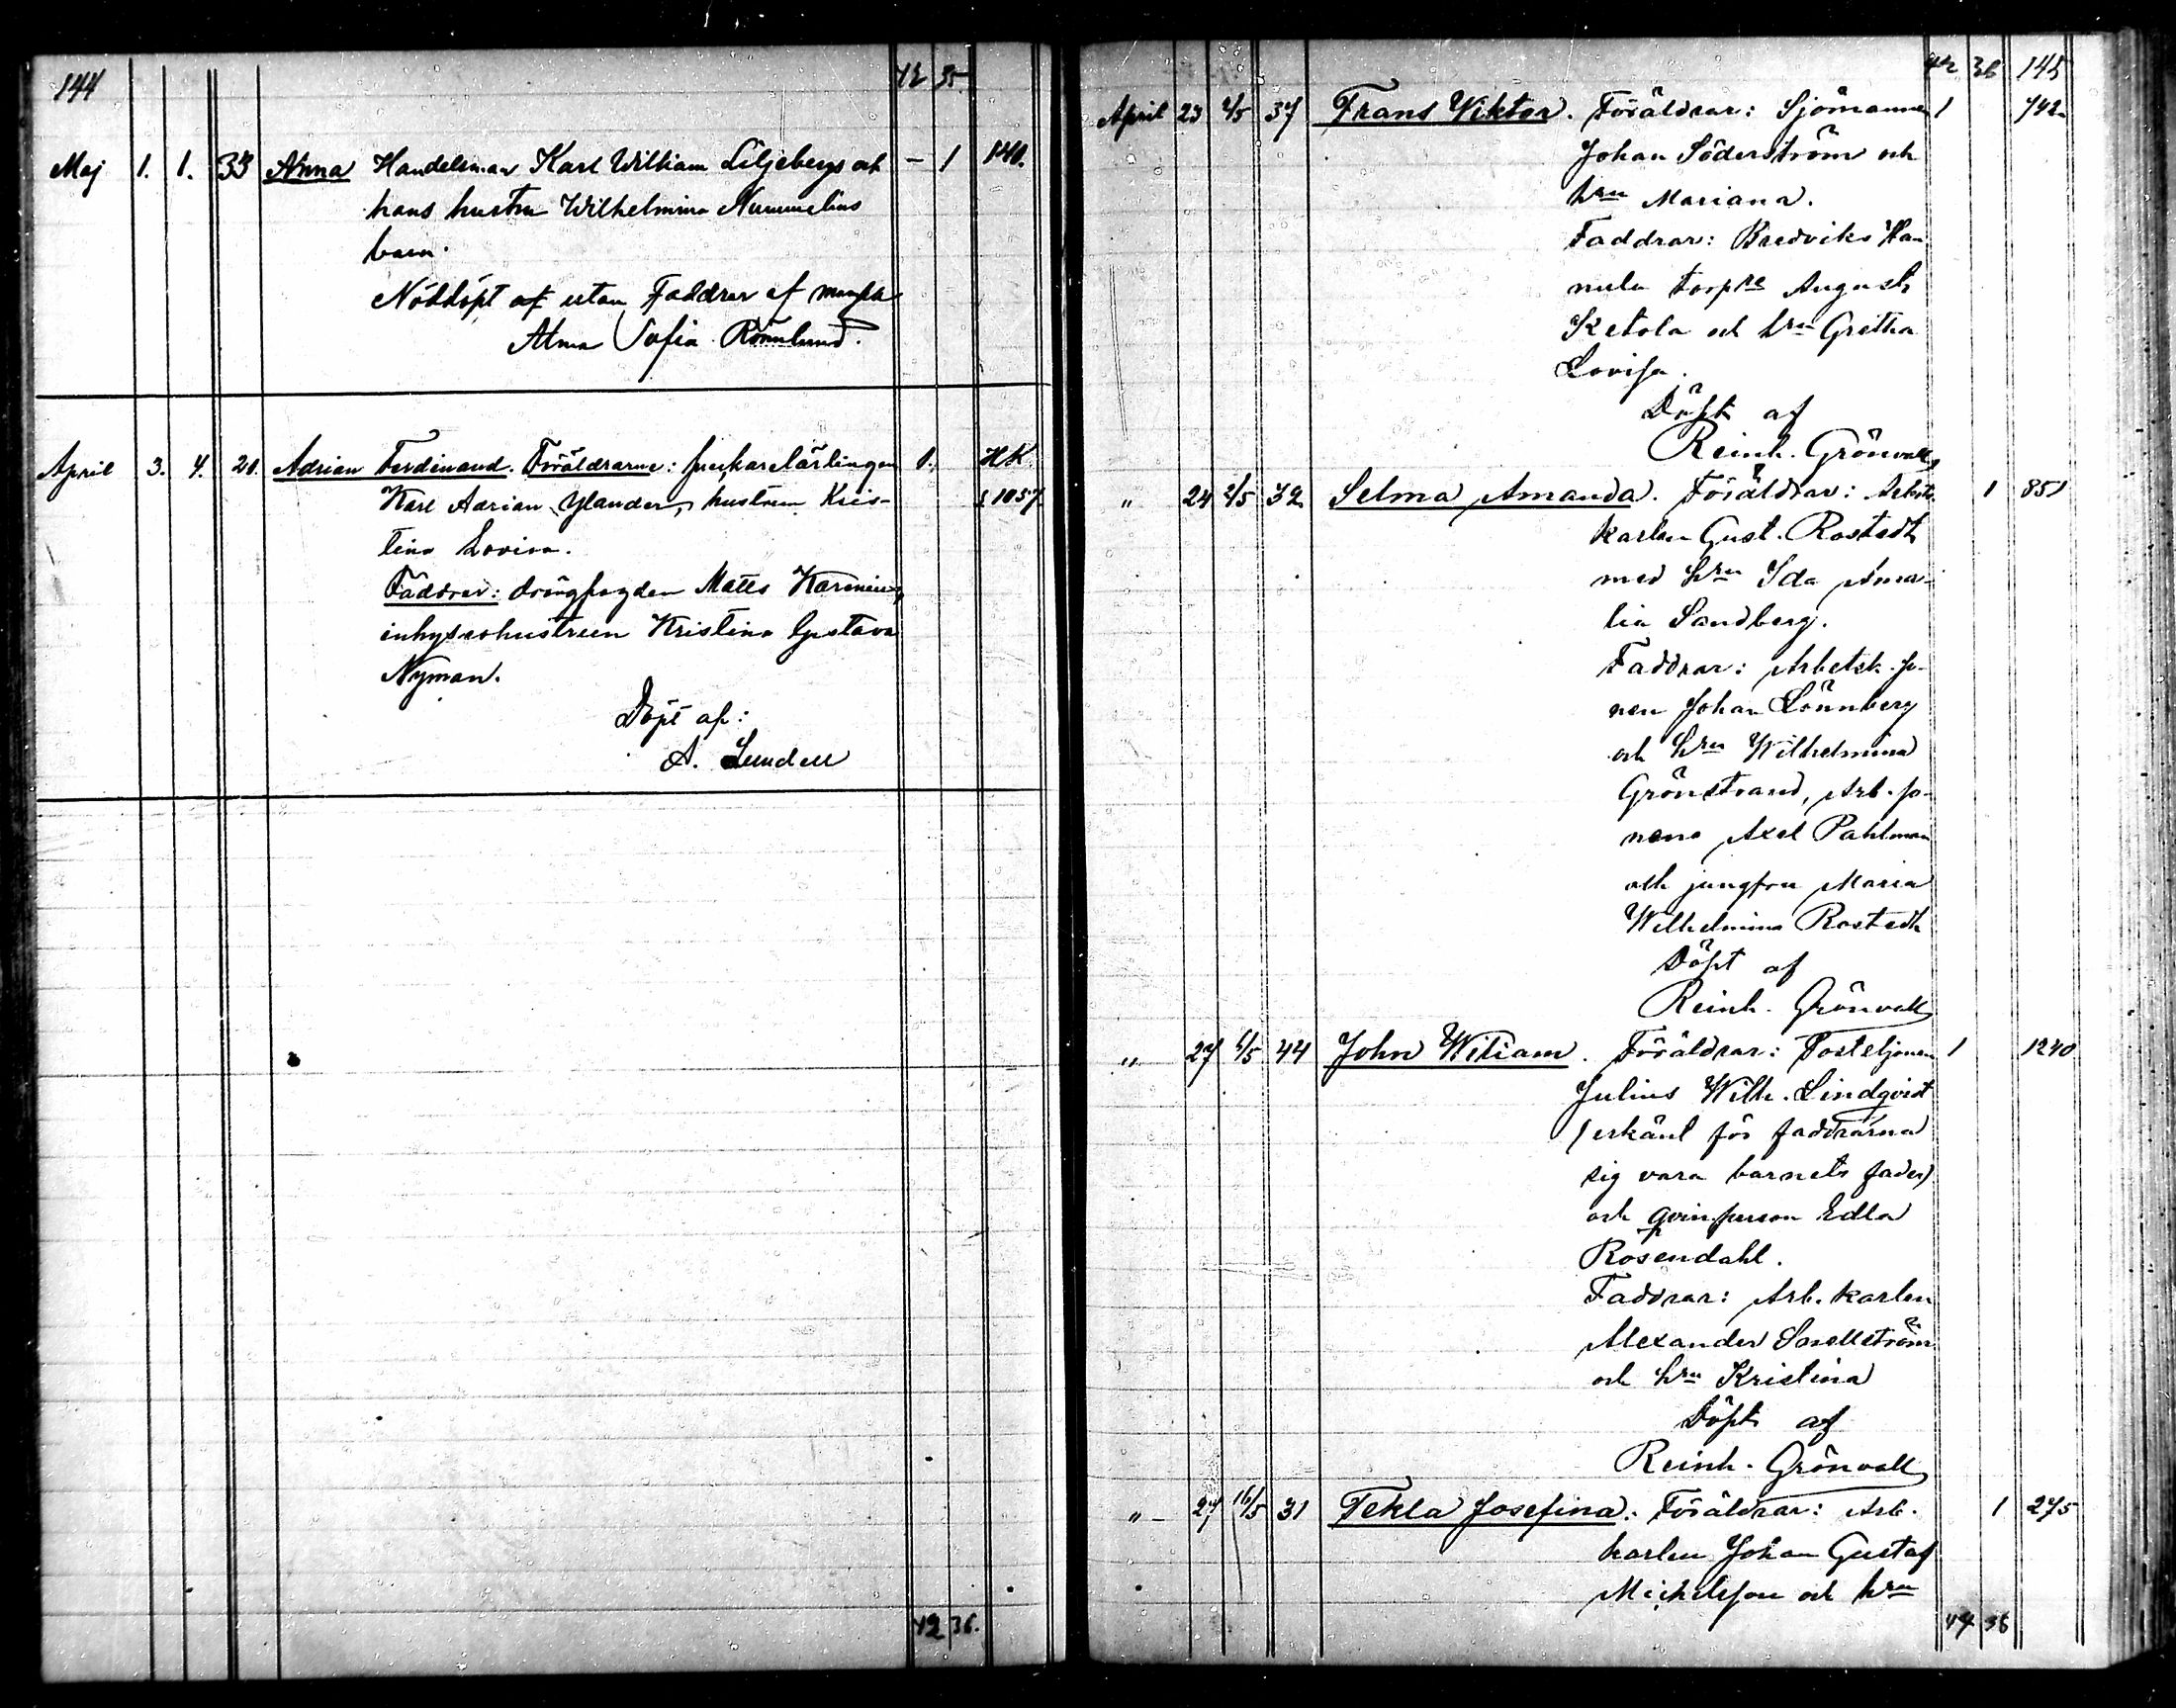 144 42 35.
Maj 1. 1. 33 Anna Handelsman Karl William Liljebergs och — 1 140.
hans hustru Wilhelmina Nummelins
barn.
Nöddöpt af utan Faddrar af
Alma Sofia Rönnlund.
April 3. 4. 20. Adrian Ferdinand. Föräldrarne: 1. HK.
Karl Adrian Ylander, hustrun Kris- § 1057
tina Lovisa.
Faddrar: drängfogden Matts
inhyseshustrun Kristina Gustava
Nyman.
Döpt af:
A. Lundell
42 36.
42 36 145
April 23 2/5 37 Frans Viktor. Föräldrar: Sjömannen 1 742
Johan Söderström och
hru Mariana.
Faddrar: Bredviks Han
nula torpre August
Ketola och hru Gretha
Lovisa.
Döpt af
Reinh. Grönvall
" 24 2/5 32 Selma Amanda. Föräldrar: Arbets- 1 851
karlen Gust. Rostedt
med hru Ida Ama-
lia Sandberg.
Faddrar: Arbetsk.
Johan Lönnberg
och hru Wilhelmina
Grönstrand, Arb.
Axel Pahlman
och jungfru Maria
Wilhelmina Rostedt
Döpt af
Reinh. Grönvall
" 27 /5 44 John Wiliam. Föräldrar: Posteljonen 1 1240
Julius Wilh. Lindqvist
(erkänt för faddrarna
sig vara barnets fader)
och qvinsperson Edla
Rosendahl.
Faddrar: Arb. karlen
Alexander Snellström
och hru Kristina
Döpt af
Reinh. Grönvall
" 27 16/5 31 Tekla Josefina. Föräldrar: Arb. 1 275
karlen Johan Gustaf
Michelsson och hru
44 38